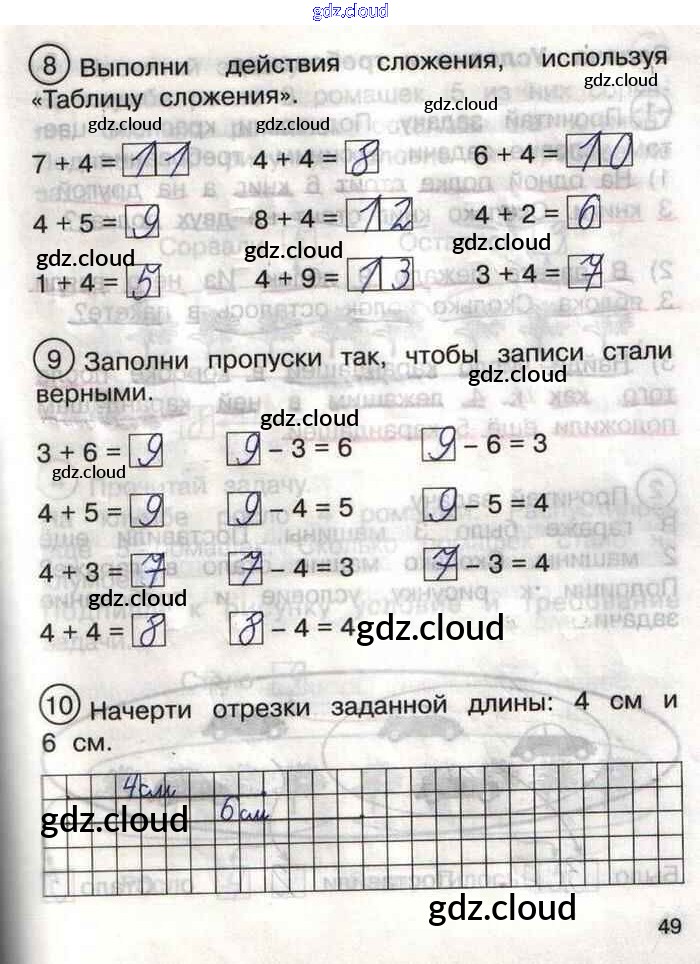 gdz.cloud
8 Выполни действия сложения, используя
gdz.cloud
«Таблицу сложения».
gdz.cloud gdz.cloud gdz.cloud
7 + 4 = 11 4 + 4 = 8 6 + 4 = 10
4 + 5 = 9 8 + 4 = 12 4 + 2 = 6
gdz.cloud gdz.cloud gdz.cloud
1 + 4 = 5 4 + 9 = 13 3 + 4 = 7
9 Заполни пропуски так, чтобы записи стали
gdz.cloud
верными.
gdz.cloud
3 + 6 = 9 9 – 3 = 6 9 – 6 = 3
gdz.cloud
4 + 5 = 9 9 – 4 = 5 9 – 5 = 4
4 + 3 = 7 7 – 4 = 3 7 – 3 = 4
gdz.cloud
4 + 4 = 8 8 – 4 = 4
gdz.cloud
10 Начерти отрезки заданной длины: 4 см и
6 см.
4см
6см
gdz.cloud
gdz.cloud
49